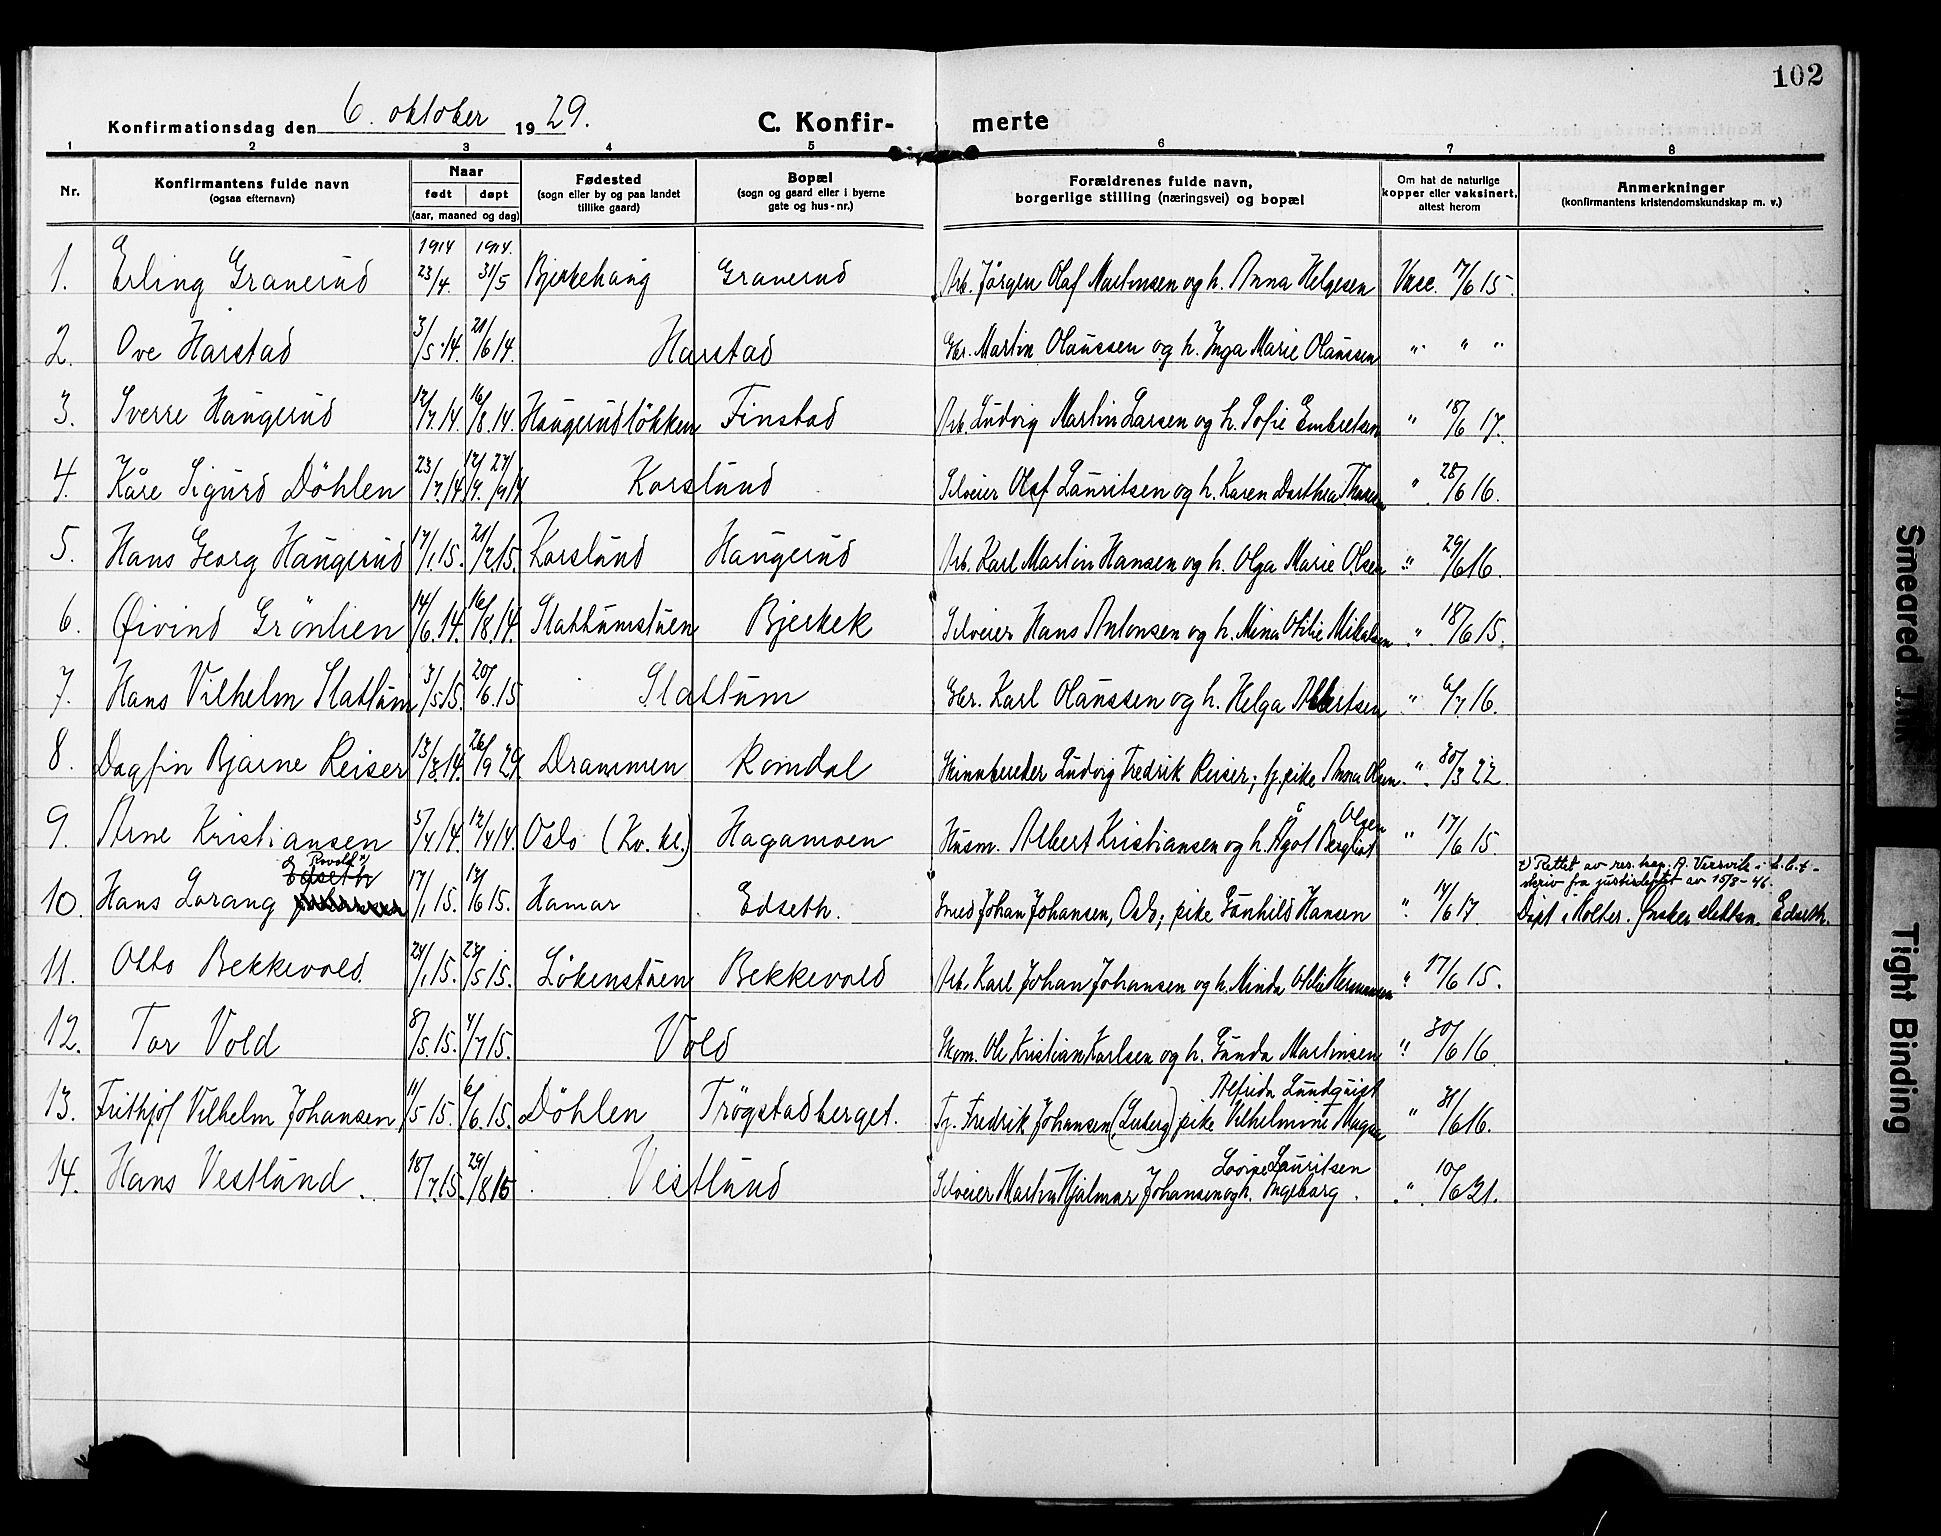 102
Konfirmationsdag den 6. oktober 1929.
C. Konfir- merte
1 2 3 4 5 6 7 8
Nr.
Konfirmantens fulde navn
(ogsaa efternavn)
Naar
født døpt
(aar, maaned og dag)
Fødested
(sogn eller by og paa landet
tillike gaard)
Bopæl
(sogn og gaard eller i byerne
gate og hus-nr.)
Forældrenes fulde navn,
borgerlige stilling (næringsvei) og bopæl
Om hat de naturlige
kopper eller vaksinert,
attest herom
Anmerkninger
(konfirmantens kristendomskundskap m. v.)
1914 1914.
1. Erling Granerud 23/4. 31/5 Bjerkehaug Granerud Arb. Jörgen Olaf Martinsen og h. Anna Helgesen Vacc. 7/6 15.
2. Ove Harstad 3/5.14. 21/6 14. Harstad Gbr. Martin Olaussen og h. Inga Marie Olaussen " " "
3. Sverre Haugerud 12/7.14. 16/8.14. Haugerudlökken Finstad Arb. Ludvig Martin Larsen og h. Sofie Embretsen " 18/6 17.
4. Kåre Sigurd Döhlen 23/7.14. 27/9 14 Korslund Selveier Olaf Lauritsen og h. Karen Dorthea " 28/6 16.
5. Hans Georg Haugerud 17/1.15. 21/2.15. Korslund Haugerud Arb. Karl Martin Hansen og h. Olga Marie Olsen " 29/6 16.
6. Øivind Grönlien 14/6.14. 16/8.14. Slattumstuen Bjerkek Selveier Hans Antonsen og h. Mina Otilie Mikalsen " 18/6 15.
7. Hans Vilhelm Slattum 3/5 15. 20/6.15 Slattum Gbr. Karl Olaussen og h. Helga Albertsen " 6/7.16.
8. Dagfin Bjarne Reiser 13/8.14. 26/9 29. Drammen Romdal Skinnbereder Ludvig Fredrik Reiser; fr. pike Anna Olsen. " 30/3 22.
Olsen
9. Arne Kristiansen 5/4 14. 12/4 14. Oslo (Kv. kl.) Hagamoen Husm. Albert Kristiansen og h. Ågot Bergliot " 17/6 15.
Edseth
10. Hans Lorang 17/1 15. 6 15. Hamar Edseth. Smed Johan Johansen, Oslo; pike Gunhild Hansen " 14/6 17
Rettet av res. kap. A.
skriv fra justisdeptet av 15/3-46.
Döpt i Holter. Ønsker slektsn. Edseth.
11. Otto Bekkevold. 24/1 15. 23/5 15. Lökenstuen Bekkevold Arb. Karl Johan Johansen og h. Minda Otilie Hermansen " 17/6 15.
12. Tor Vold 8/5.15. 4/7 15. Vold Skom. Ole Kristian Karlsen og h. Gunda Martinsen " 30/6 16
Alfrida Lundquist
13. Frithjof Vilhelm Johansen 11/5 15. 6/6.15. Döhlen Trögstadberget. Tj. Fredrik Johansen pike Vilhelmine " 31/6 16.
Lovise Lauritsen
14. Hans Vestlund. 18/7.15. 29/8 15 Vestlund Selveier Martin Hjalmar Johansen og h. Ingeborg. " 10/6 21.
Smeared Ink
Tight Binding